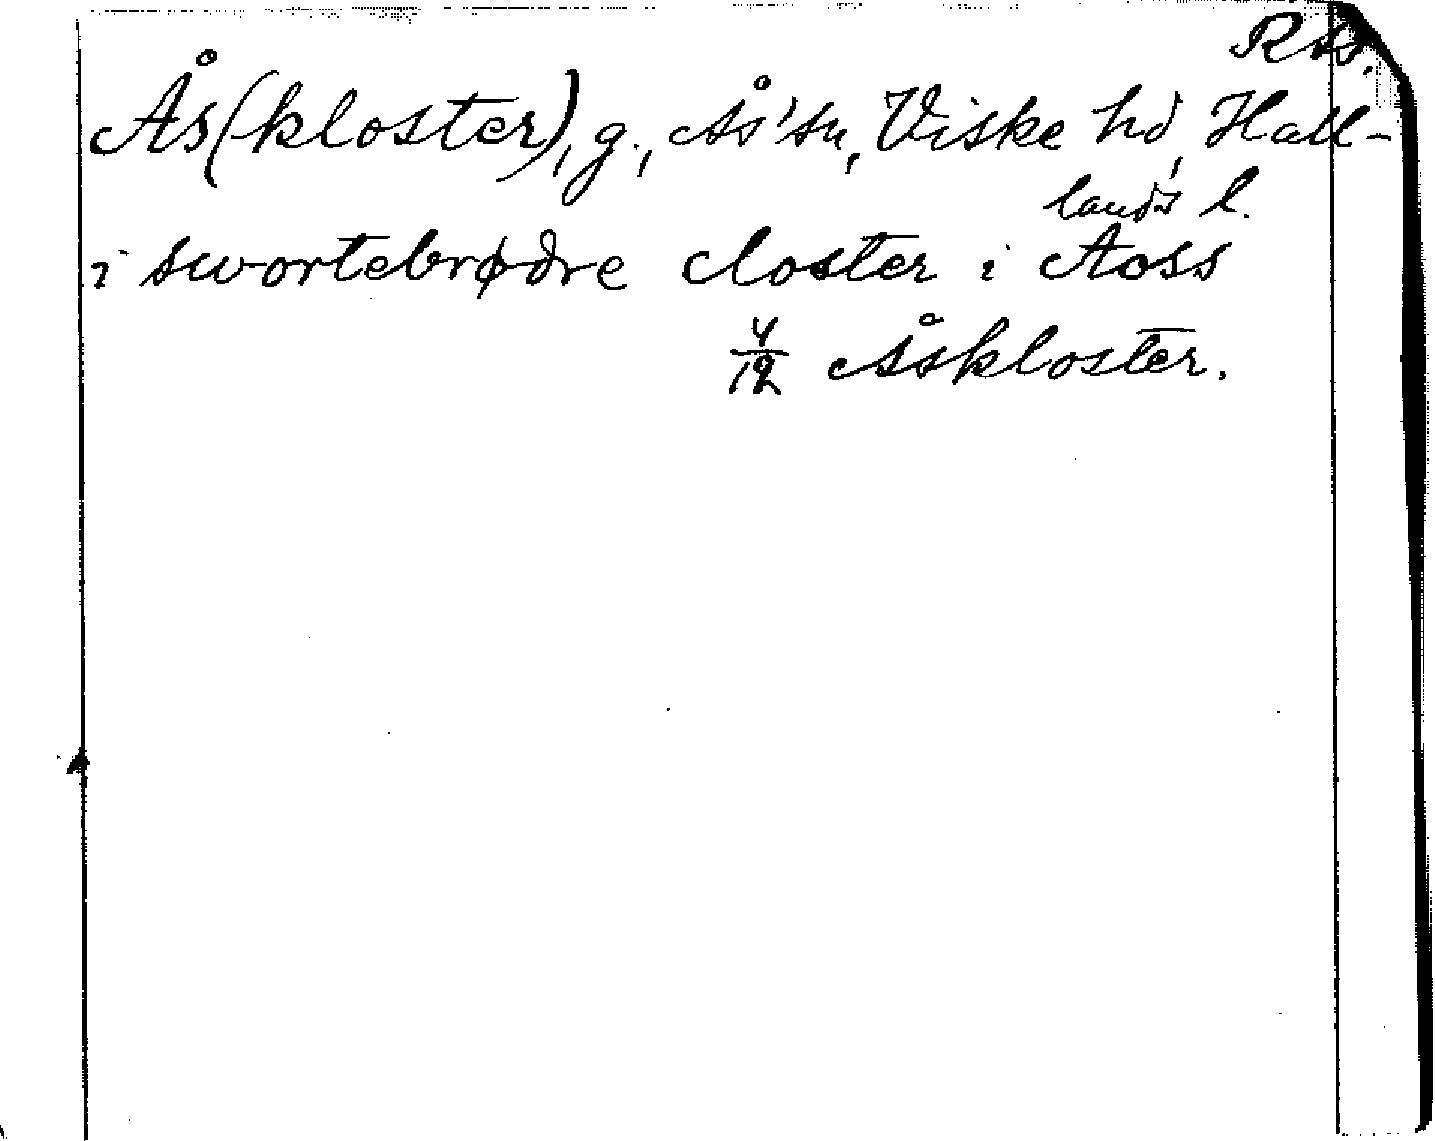 Ås(kloster), g., Ås' sn, Viske hd, Hall-
lands l.
i swortebrødre closter i Aoss
4/12 Åskloster.